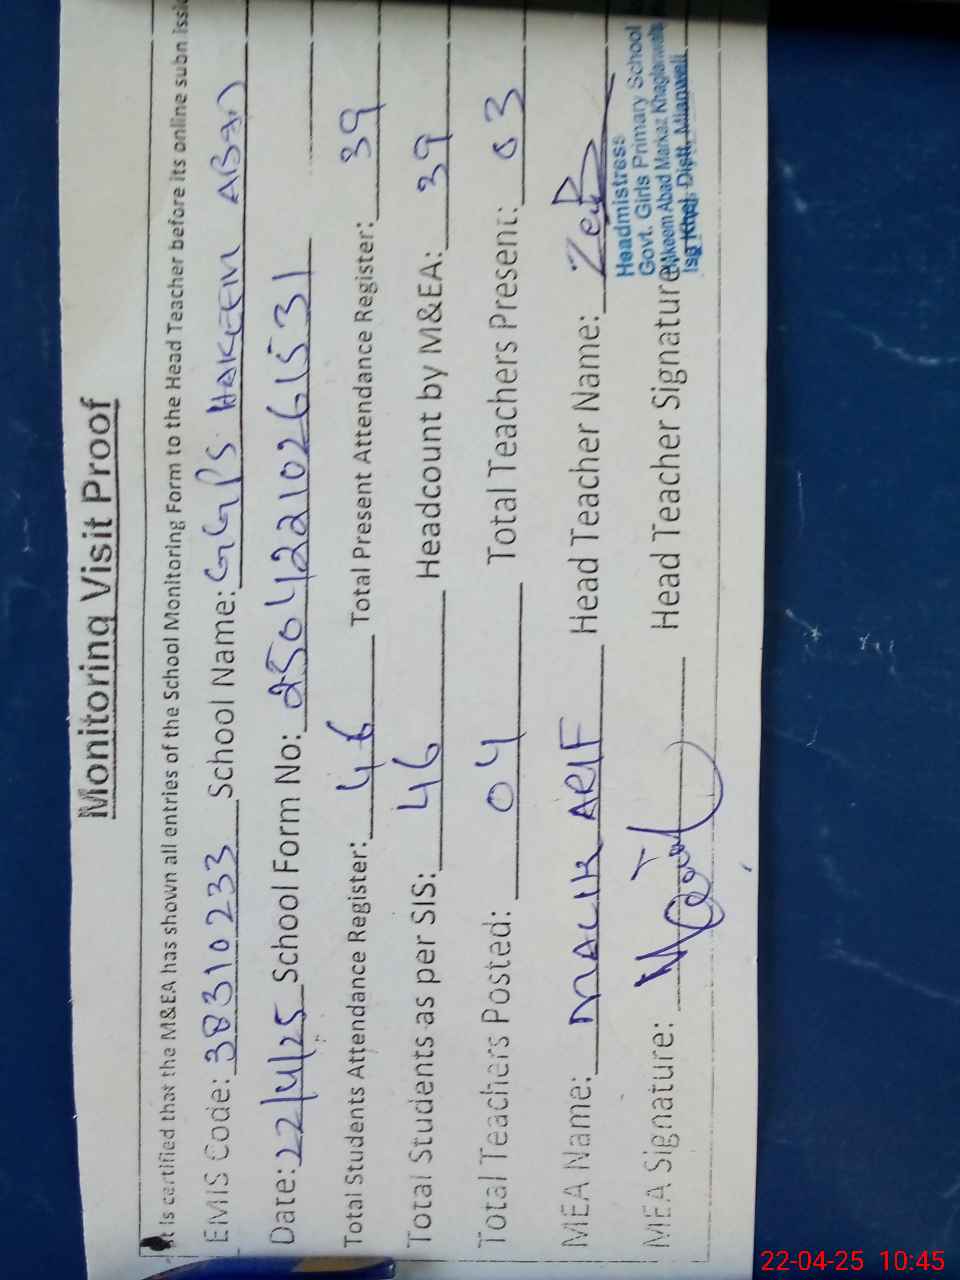 Monitoring Visit Proof
It is certified that the M&EA has shown all entries of the School Monitoring Form to the Head Teacher before its online subn issi
EMIS Code: 38310233 School Name: GGPS HAKEEM ABAD
Date: 22/4/25 School Form No: 25042210261531
Total Students Attendance Register: 46 Total Present Attendance Register: 39
Total Students as per SIS: 46 Headcount by M&EA: 39
Total Teachers Posted: 04 Total Teachers Present: 03
MEA Name: MALIK ARIF Head Teacher Name:
MEA Signature: Head Teacher Signature
Headmistress
Govt. Girls Primary School
Hakeem Abad Markaz Khaglanwala
Isa Khel Distt. Mianwali
22-04-25 10:45